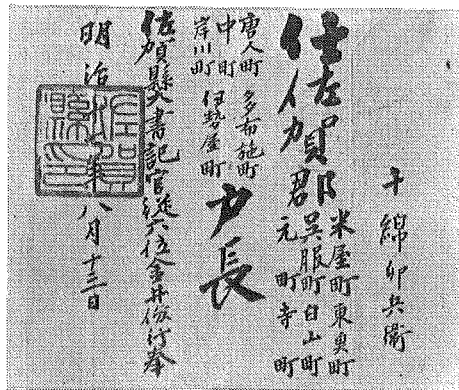 千綿卯兵衛
任佐賀郡
米屋町東魚町
呉服町白山町
元町寺町
唐人町多布施町
中町
岸川町伊勢屋町
戸長
佐賀縣大書記官従六位金井俊行奉
明治
八月十三日
佐賀縣印